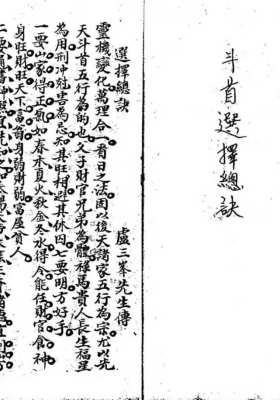 斗首選擇總訣
選擇總訣
盧三峯先生傳
靈機變化萬理合一看日之法固以後天諸家五行為宗尤以先
天斗首五行為的也父子財官兄弟為體祿馬貴人長生福星
為用刑冲尅害為忌知其旺相避其休囚七要明方好手
一要山家得正氣如春木夏火秋金冬水得令能任財官食神
身旺財旺天下富翁身弱財弱富屋貧人
二要